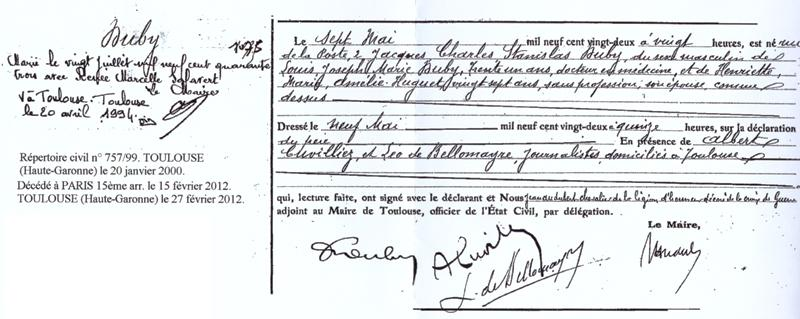 Buby
1075
Marié le vingt juillet mil neuf cent quarante
trois avec Renée Marcelle
le Maire
Và Toulouse. Toulouse
le 20 avril 1994.
Répertoire civil n° 757/99. TOULOUSE
(Haute-Garonne) le 20 janvier 2000.
Décédé à PARIS 15ème arr. le 15 février 2012.
TOULOUSE (Haute-Garonne) le 27 février 2012.
Le sept Mai mil neuf cent vingt-deux à vingt heures, est né rue
de la Poste 2, Jacques Charles Stanislas Buby, du sexe masculin de
Louis, Joseph Marie Buby, trente un ans, docteur en médecine, et de Henriette,
Marie, Amélie Huguet, vingt sept ans, sans profession, son épouse, comme
dessus
Dressé le neuf Mai mil neuf cent vingt-deux à quinze heures, sur la déclaration
du père En présence de Albert
Cuvilliez, et Léo de Bellomayre, journalistes, domiciliés à Toulouse
qui, lecture faite, ont signé avec le déclarant et Nous chevalier de la légion d'honneur décoré de la croix de Guerre
adjoint au Maire de Toulouse, officier de l'État Civil, par délégation.
Le Maire,
L. de Bellomayre